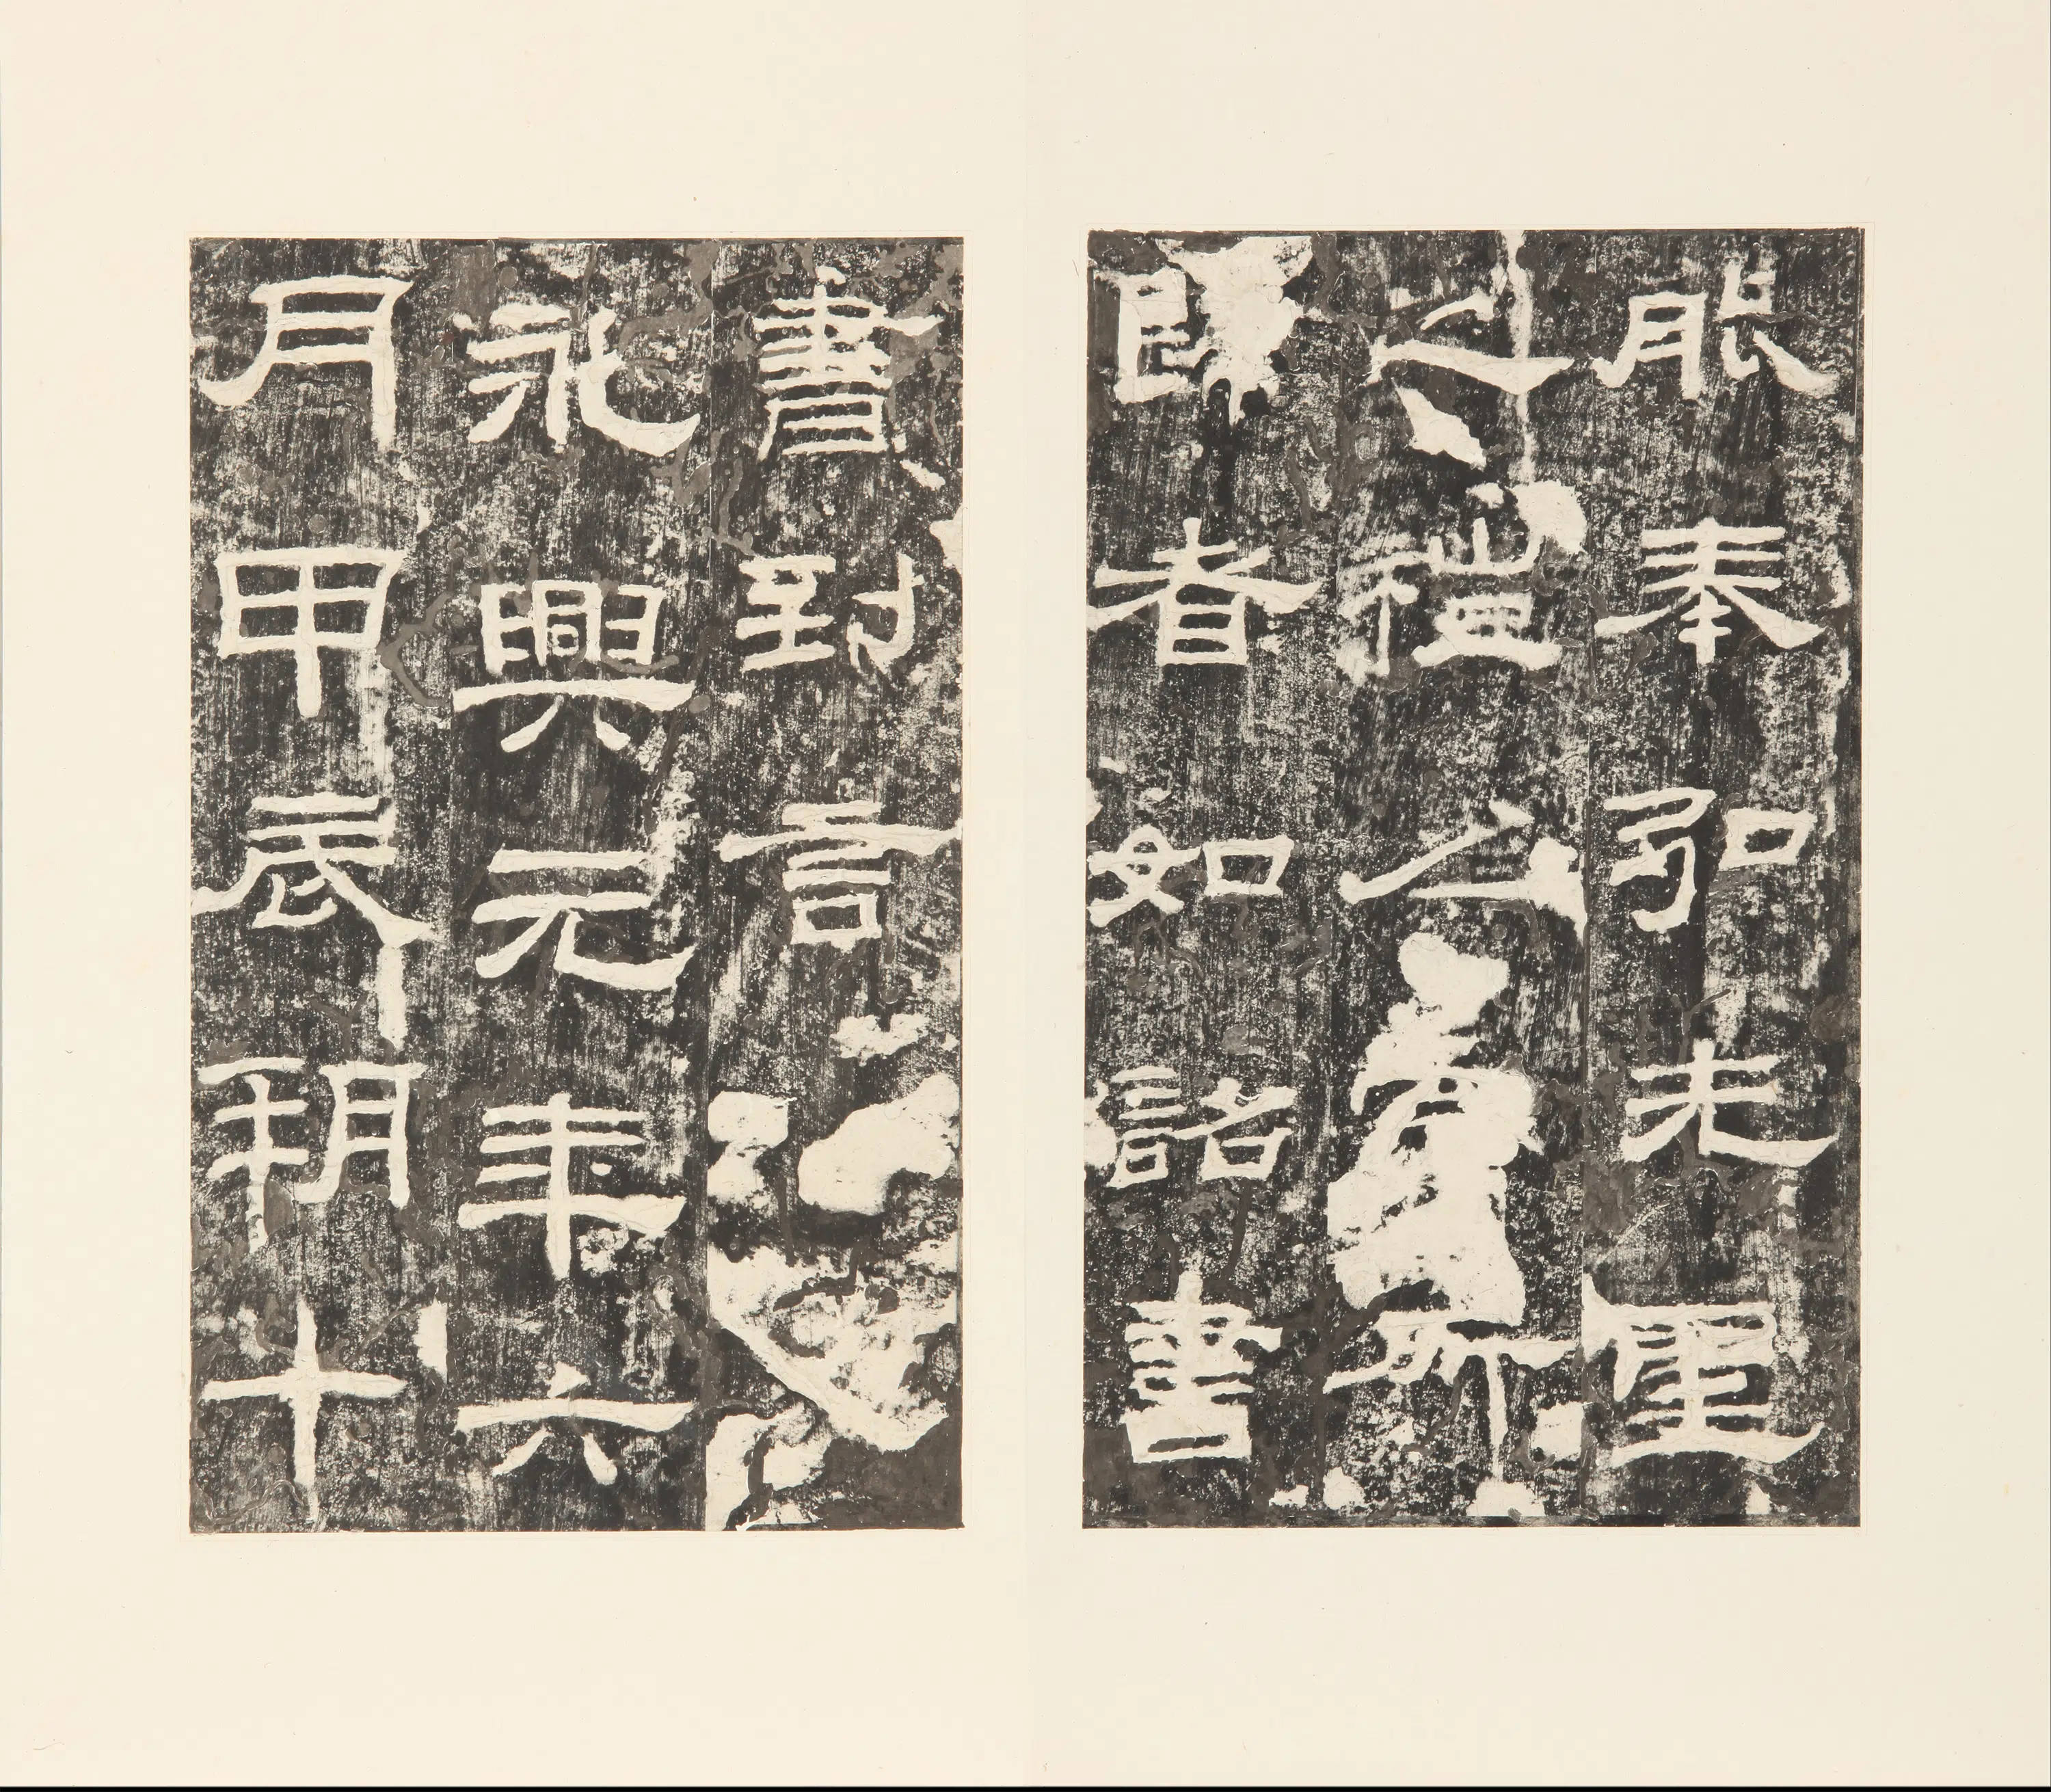 能奉弘先聖
之禮所
者如詔書
書到言
永興元年六
月甲辰朔十